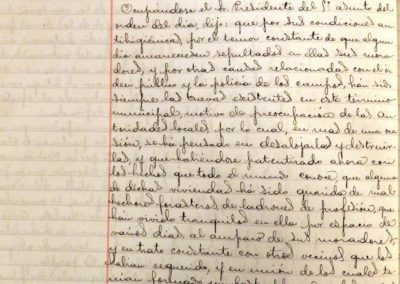 Ocupándose el Sr. Presidente del 1º asunto del
orden del día, dijo: que por sus condiciones an
tihigiénicas, por el temor constante de que algun
día amaneciesen sepultados en ellas sus mora
dores, y por otras causas relacionadas con el or
den público y la policía de los campos, han sido
siempre las cuevas existentes en este término
municipal, motivo de preocupación de las Au
toridades locales, por lo cual, en mas de una oca
sión, se ha pensado en desalojarlas y destruir
las, y que habiéndose patentizado ahora con
los hechos que todo el mundo conoce, que alguna
de dichas viviendas ha sido guarida de mal
hechores forasteros, de ladrones de profesión, que
han vivido tranquilos en ella por espacio de
varios días al amparo de sus moradores,
y en trato constante con otros vecinos que les
habían seguido, y en unión de los cuales te
nian formado